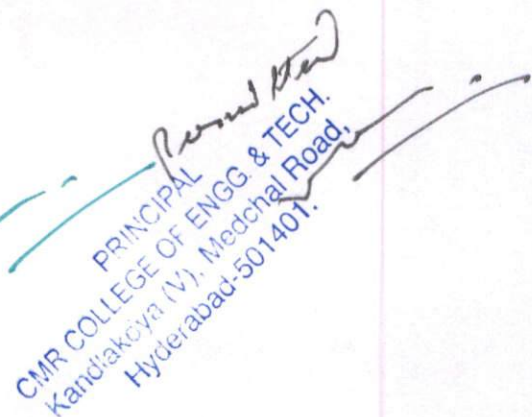 PRINCIPAL
CMR COLLEGE OF ENGG. & TECH.
Kandlakoya (V), Medchal Road,
Hyderabad-501401.